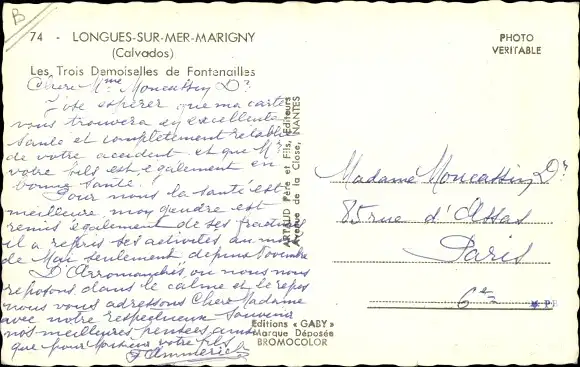 B
74 - LONGUES-SUR-MER-MARIGNY
(Calvados)
Les Trois Demoiselles de Fontenailles
PHOTO
VERITABLE
Chere Mme Moncassin Dr
J'ose espérer que ma carte
vous trouvera en excellente
santé et complètement rétablie
de votre accident et que Mr
votre fils est également en
bonne santé.
Pour nous la santé est
meilleure, mon gendre est
remis également de ses fractures
il a repris ses activités au mois
de Mai seulement depuis Novembre
D'Arromanches, ou nous nous
reposons dans le calme et le repos
nous vous adressons Chere Madame
avec notre respectueux souvenir
nos meilleures pensées ainsi
que pour Monsieur votre fils
ARTAUD Père et Fils, Editeurs
Avenue de la Close, NANTES
Editions « GABY »
Marque Déposée
BROMOCOLOR
Madame Moncassin Dr
85 rue d'Assas
Paris
6e